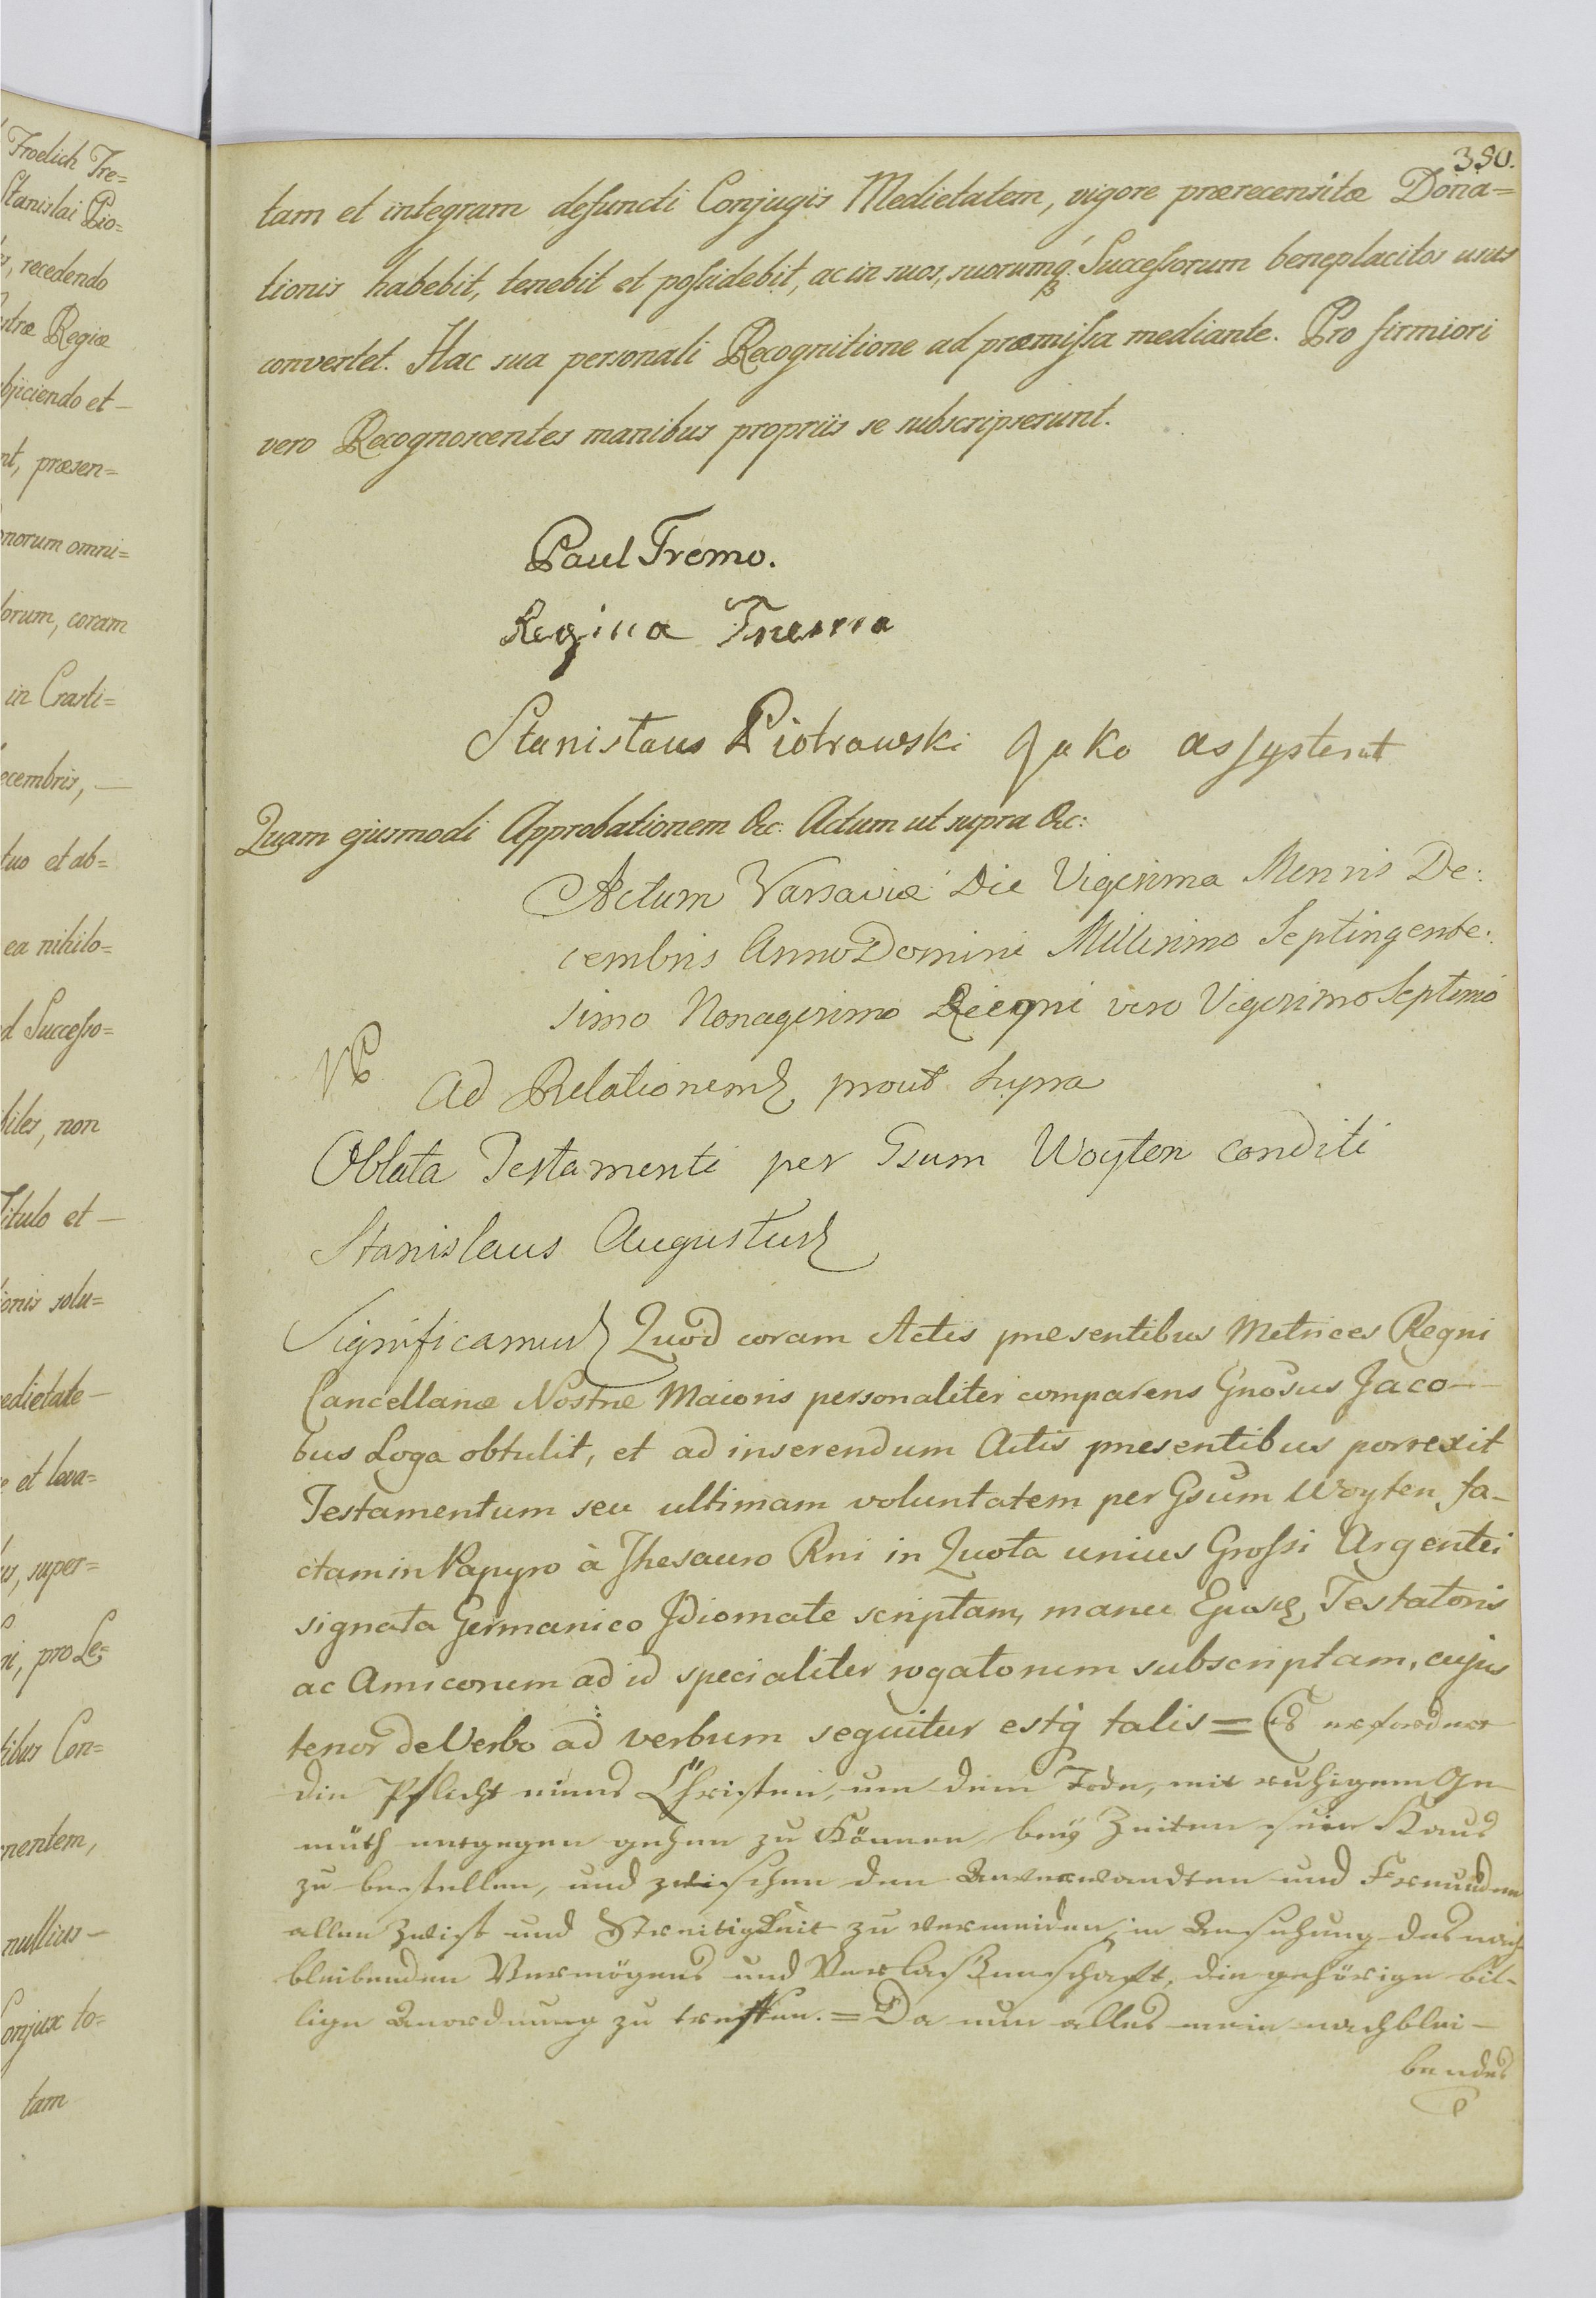 Froelich Tre=
Stanislai Pio=
recedendo
Regiæ
et —
præsen=
omni=
coram
in Crasti=
et ab=
ea nihilo=
Successo=
non
Titulo et —
solu=
et leva=
super=
pro Le=
Con=
nullius —
to=
tam
380.
tam et integram defuncti Conjugis Medietatem, vigore prærecensitæ Dona=
tionis habebit, tenebit et possidebit, ac in suos, suorumq. Successorum beneplacitos usus
convertet. Hac sua personali Recognitione ad præmissa mediante. Pro firmiori
vero Recognoscentes manibus propriis se subscripserunt.
Paul Tremo.
Regina Tremo
Stanistaus Piotrowski Jako assystent
Quam ejusmodi Approbationem &c: Actum ut supra &c:
Actum Varsaviæ Die Vigesima Mensis De:
cembris Anno Domini Millesimo Septingente:
simo Nonagesimo Regni vero Vigesimo Septimo
Ad Relationem prout supra
Oblata Testamenti per Gsum Woyten conditi
Stanislaus Augustus
Significamus Quod coram Actis præsentibus Metrices Regni
Cancellariæ Nostræ Maioris personaliter comparens Gnosus Jaco—
bus Loga obtulit, et ad inserendum Actis præsentibus porrexit
Testamentum seu ultimam voluntatem per Gsum Woyten fa-
ctam in Papyro à Thesauro Rni in Quota unius Grossi Argentei
signata Germanico Idiomate scriptam, manu Ejusq, Testatoris
ac Amicorum ad id specialiter rogatorum subscriptam, cujus
tenor de Verbo ad verbum sequitur estq talis = Es erfordert
die Pflicht eines Christen, um dem Tode, mit ruhigem Ge
müth entgegen gehen zu können bey Zeiten sein Haus
zu bestellen, und zwischen den Anverwandten und Freunden
allen Zwist und Streitigkeit zu vermeiden, in Ansehung des nach
bleibenden Vermögens und Verlaßenschaft, die gehörige bil-
lige Anordnung zu treffen. = Da nun alles mein nachblei—
bendes